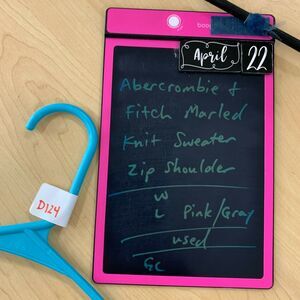 boo
April 22
Abercrombie &
Fitch Marled
Knit Sweater
Zip Shoulder
W
L Pink/Gray
used
GC
D124